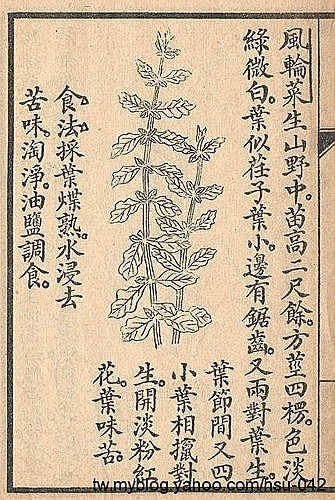 風輪菜生山野中。苗高二尺餘。方莖四楞。色淡
綠微白。葉似荏子葉小。邊有鋸齒。又兩對葉生。
葉節間又四
小葉相攛對
生。開淡粉紅
花。葉味苦。
食法採葉煠熟。水浸去
苦味。淘淨。油鹽調食。
tw.myblog.yahoo.com/hsu-042